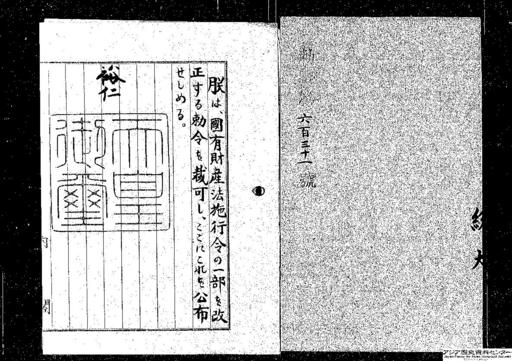 勅令第六百三十一號
朕は、國有財産法施行令の一部を改
正する勅令を裁可し、ここにこれを公布
せしめる。
裕仁
天皇御璽
内閣
アジア歴史資料センター